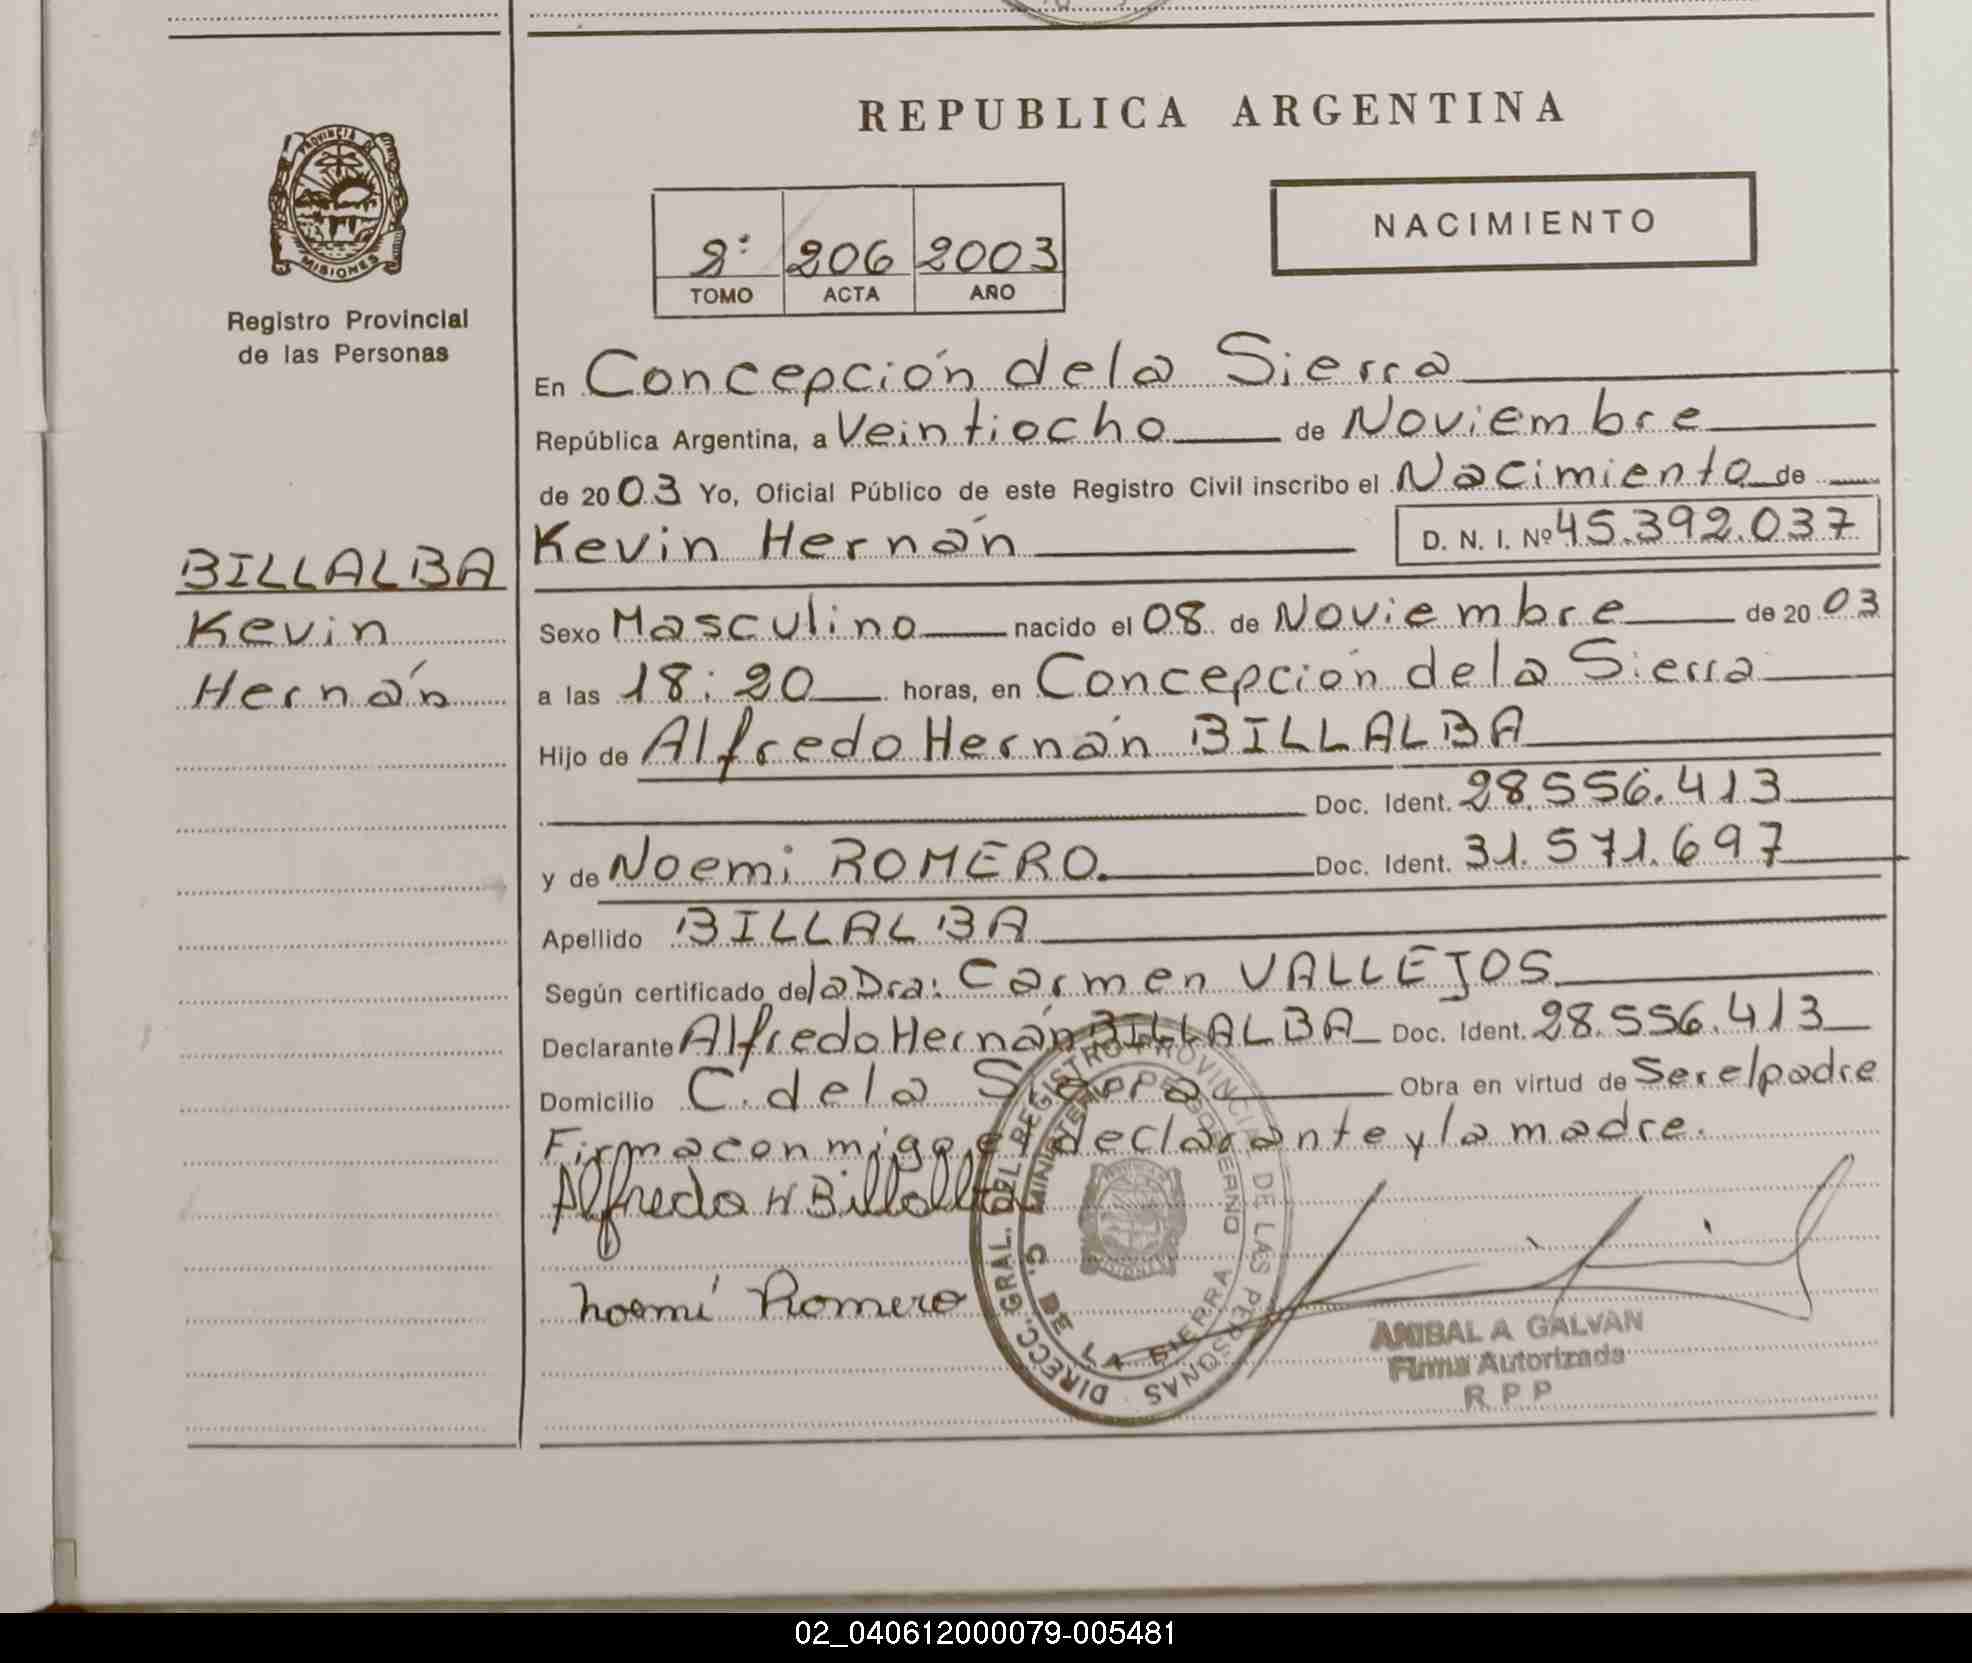 REPUBLICA ARGENTINA
NACIMIENTO
2º 206 2003
TOMO ACTA AÑO
PROVINCIA DE
MISIONES
Registro Provincial
de las Personas
BILLALBA
Kevin
Hernán
En Concepción de la Sierra
República Argentina, a Veintiocho de Noviembre
de 2003 Yo, Oficial Público de este Registro Civil inscribo el Nacimiento de
Kevin Hernán D. N. I. Nº 45.392.037
Sexo Masculino nacido el 08 de Noviembre de 2003
a las 18:20 horas, en Concepción de la Sierra
Hijo de Alfredo Hernán BILLALBA
Doc. Ident. 28.556.413
y de Noemi ROMERO. Doc. Ident. 31.571.697
Apellido BILLALBA
Según certificado de la Dra: Carmen VALLEJOS
Declarante Alfredo Hernán BILLALBA Doc. Ident. 28.556.413
Domicilio C. de la Sierra Obra en virtud de Ser el padre
Firma conmigo el declarante y la madre.
Alfredo H Billalba
Noemí Romero
DIRECC. GRAL. DEL REGISTRO PROVINCIAL DE LAS PERSONAS
MINISTERIO DE GOBIERNO
C. DE LA SIERRA
ANIBAL A GALVAN
Firma Autorizada
R P P
02_040612000079-005481